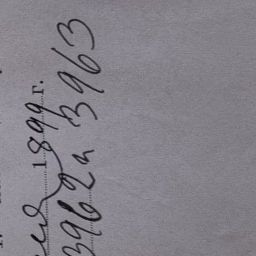 1899 г.
3962 и 3963